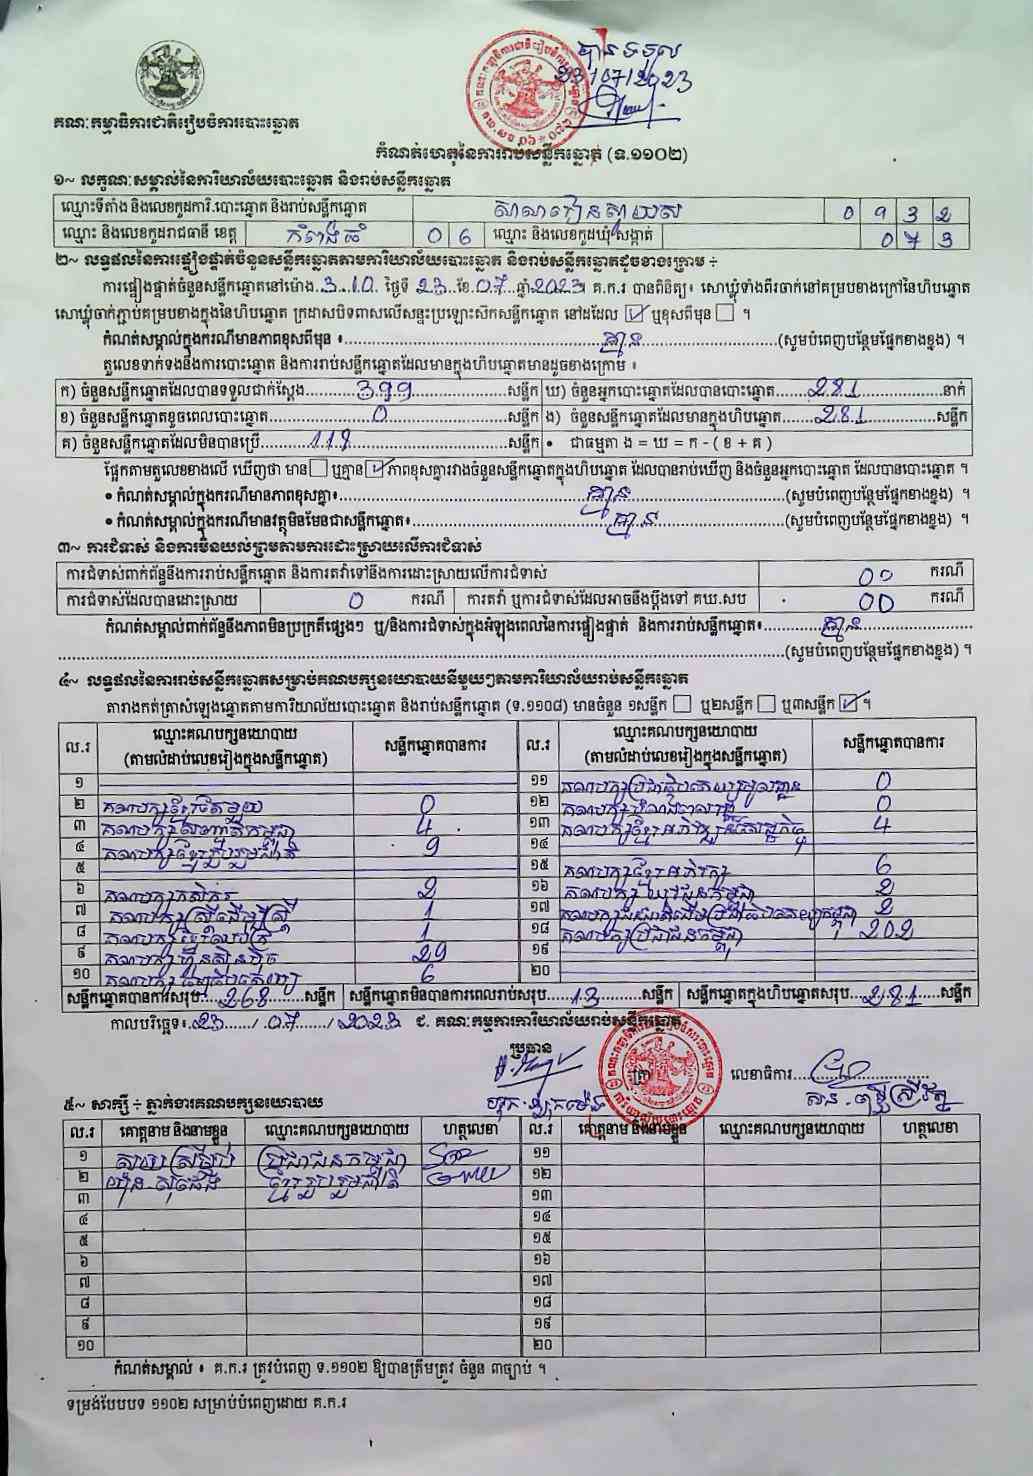 បានទទួល
23/07/2023
គណៈកម្មាធិការជាតិរៀបចំការបោះឆ្នោត
កំណត់ហេតុនៃការរាប់សន្លឹកឆ្នោត (ទ.១១០២)
១~ លក្ខណៈសម្គាល់នៃការិយាល័យបោះឆ្នោត និងរាប់សន្លឹកឆ្នោត
ឈ្មោះទីតាំង និងលេខកូដការិ.បោះឆ្នោត និងរាប់សន្លឹកឆ្នោត 0 9 3 2
ឈ្មោះ និងលេខកូដរាជធានី ខេត្ត កំពង់ធំ 0 6 ឈ្មោះ និងលេខកូដឃុំ សង្កាត់ 0 7 3
២~ លទ្ធផលនៃការផ្ទៀងផ្ទាត់ចំនួនសន្លឹកឆ្នោតតាមការិយាល័យបោះឆ្នោត និងរាប់សន្លឹកឆ្នោតដូចខាងក្រោម ÷
ការផ្ទៀងផ្ទាត់ចំនួនសន្លឹកឆ្នោតនៅម៉ោង 3.10 ថ្ងៃទី 23 ខែ 07 ឆ្នាំ 2023 គ.ក.រ បានពិនិត្យ៖ សោឃ្លុំទាំងពីរចាក់នៅគម្របខាងក្រៅនៃហិបឆ្នោត
សោឃ្លុំចាក់ភ្ជាប់គម្របខាងក្នុងនៃហិបឆ្នោត ក្រដាសបិទពាសលើសន្ទះប្រឡោះស៊កសន្លឹកឆ្នោត នៅដដែល ☑ ឬខុសពីមុន ☐ ។
កំណត់សម្គាល់ក្នុងករណីមានភាពខុសពីមុន ៖ គ្មាន (សូមបំពេញបន្ថែមផ្នែកខាងខ្នង) ។
តួលេខទាក់ទងនឹងការបោះឆ្នោត និងការរាប់សន្លឹកឆ្នោតដែលមានក្នុងហិបឆ្នោតមានដូចខាងក្រោម ៖
ក) ចំនួនសន្លឹកឆ្នោតដែលបានទទួលជាក់ស្ដែង 399 សន្លឹក ឃ) ចំនួនអ្នកបោះឆ្នោតដែលបានបោះឆ្នោត 281 នាក់
ខ) ចំនួនសន្លឹកឆ្នោតខូចពេលបោះឆ្នោត 0 សន្លឹក ង) ចំនួនសន្លឹកឆ្នោតដែលមានក្នុងហិបឆ្នោត 281 សន្លឹក
គ) ចំនួនសន្លឹកឆ្នោតដែលមិនបានប្រើ 118 សន្លឹក • ជាធម្មតា ង = ឃ = ក - ( ខ + គ )
ផ្អែកតាមតួលេខខាងលើ ឃើញថា មាន ☐ ឬគ្មាន ☑ ភាពខុសគ្នារវាងចំនួនសន្លឹកឆ្នោតក្នុងហិបឆ្នោត ដែលបានរាប់ឃើញ និងចំនួនអ្នកបោះឆ្នោត ដែលបានបោះឆ្នោត ។
• កំណត់សម្គាល់ក្នុងករណីមានភាពខុសគ្នា៖ គ្មាន (សូមបំពេញបន្ថែមផ្នែកខាងខ្នង) ។
• កំណត់សម្គាល់ក្នុងករណីមានវត្ថុមិនមែនជាសន្លឹកឆ្នោត៖ គ្មាន (សូមបំពេញបន្ថែមផ្នែកខាងខ្នង) ។
៣~ ការជំទាស់ និងការមិនយល់ព្រមតាមការដោះស្រាយលើការជំទាស់
ការជំទាស់ពាក់ព័ន្ធនឹងការរាប់សន្លឹកឆ្នោត និងការតវ៉ាទៅនឹងការដោះស្រាយលើការជំទាស់ 00 ករណី
ការជំទាស់ដែលបានដោះស្រាយ 0 ករណី ការតវ៉ា ឬការជំទាស់ដែលអាចនឹងប្ដឹងទៅ គឃ.សប 00 ករណី
កំណត់សម្គាល់ពាក់ព័ន្ធនឹងភាពមិនប្រក្រតីផ្សេងៗ ឬ/និងការជំទាស់ក្នុងអំឡុងពេលនៃការផ្ទៀងផ្ទាត់ និងការរាប់សន្លឹកឆ្នោត៖ គ្មាន
(សូមបំពេញបន្ថែមផ្នែកខាងខ្នង) ។
៤~ លទ្ធផលនៃការរាប់សន្លឹកឆ្នោតសម្រាប់គណបក្សនយោបាយនីមួយៗតាមការិយាល័យរាប់សន្លឹកឆ្នោត
តារាងកត់ត្រាសំឡេងឆ្នោតតាមការិយាល័យបោះឆ្នោត និងរាប់សន្លឹកឆ្នោត (ទ.១១០៨) មានចំនួន ១សន្លឹក ☐ ឬ២សន្លឹក ☐ ឬ៣សន្លឹក ☑ ។
ល.រ ឈ្មោះគណបក្សនយោបាយ (តាមលំដាប់លេខរៀងក្នុងសន្លឹកឆ្នោត) សន្លឹកឆ្នោតបានការ ល.រ ឈ្មោះគណបក្សនយោបាយ (តាមលំដាប់លេខរៀងក្នុងសន្លឹកឆ្នោត) សន្លឹកឆ្នោតបានការ
១ ១១ 0
២ 0 ១២ 0
៣ 4 ១៣ គណបក្សខ្មែរអភិវឌ្ឍន៍សេដ្ឋកិច្ច 4
៤ គណបក្សខ្មែររួបរួមជាតិ 9 ១៤
៥ ១៥ គណបក្សខ្មែរអភិរក្ស 6
៦ គណបក្សកសិករ 2 ១៦ គណបក្សយុវជនកម្ពុជា 2
៧ គណបក្សស្រីដើម្បីស្រី 1 ១៧ 2
៨ 1 ១៨ គណបក្សប្រជាជនកម្ពុជា 202
៩ គណបក្សហ៊្វុនស៊ិនប៉ិច 29 ១៩
១០ 6 ២០
សន្លឹកឆ្នោតបានការសរុប 268 សន្លឹក សន្លឹកឆ្នោតមិនបានការពេលរាប់សរុប 13 សន្លឹក សន្លឹកឆ្នោតក្នុងហិបឆ្នោតសរុប 281 សន្លឹក
កាលបរិច្ឆេទ៖ 23 / 07 / 2023 ជ. គណៈកម្មការការិយាល័យរាប់សន្លឹកឆ្នោត
ប្រធាន ត្រា លេខាធិការ
៥~ សាក្សី ÷ ភ្នាក់ងារគណបក្សនយោបាយ
ល.រ គោត្តនាម និងនាមខ្លួន ឈ្មោះគណបក្សនយោបាយ ហត្ថលេខា ល.រ គោត្តនាម និងនាមខ្លួន ឈ្មោះគណបក្សនយោបាយ ហត្ថលេខា
១ ប្រជាជនកម្ពុជា ១១
២ ខ្មែររួបរួមជាតិ ១២
៣ ១៣
៤ ១៤
៥ ១៥
៦ ១៦
៧ ១៧
៨ ១៨
៩ ១៩
១០ ២០
កំណត់សម្គាល់ ៖ គ.ក.រ ត្រូវបំពេញ ទ.១១០២ ឱ្យបានត្រឹមត្រូវ ចំនួន ៣ច្បាប់ ។
ទម្រង់បែបបទ ១១០២ សម្រាប់បំពេញដោយ គ.ក.រ